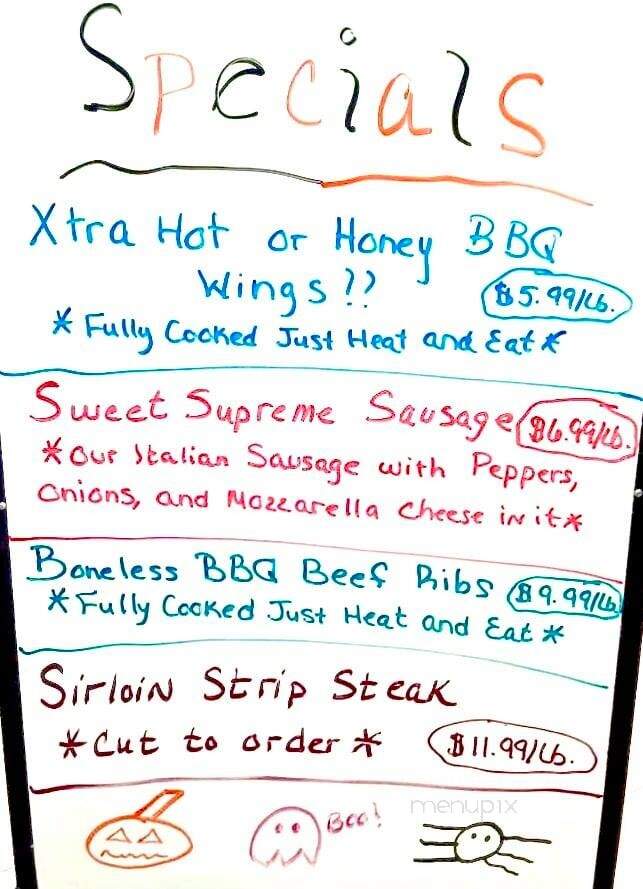 Specials
Xtra Hot or Honey BBQ
Wings?? $5.99/Lb.
* Fully Cooked Just Heat and Eat *
Sweet Supreme Sausage $6.99/Lb.
*Our Italian Sausage with Peppers,
Onions, and Mozzarella Cheese in it*
Boneless BBQ Beef Ribs $9.99/Lb
*Fully Cooked Just Heat and Eat *
Sirloin Strip Steak
*Cut to order * $11.99/Lb.
Boo!
menupix